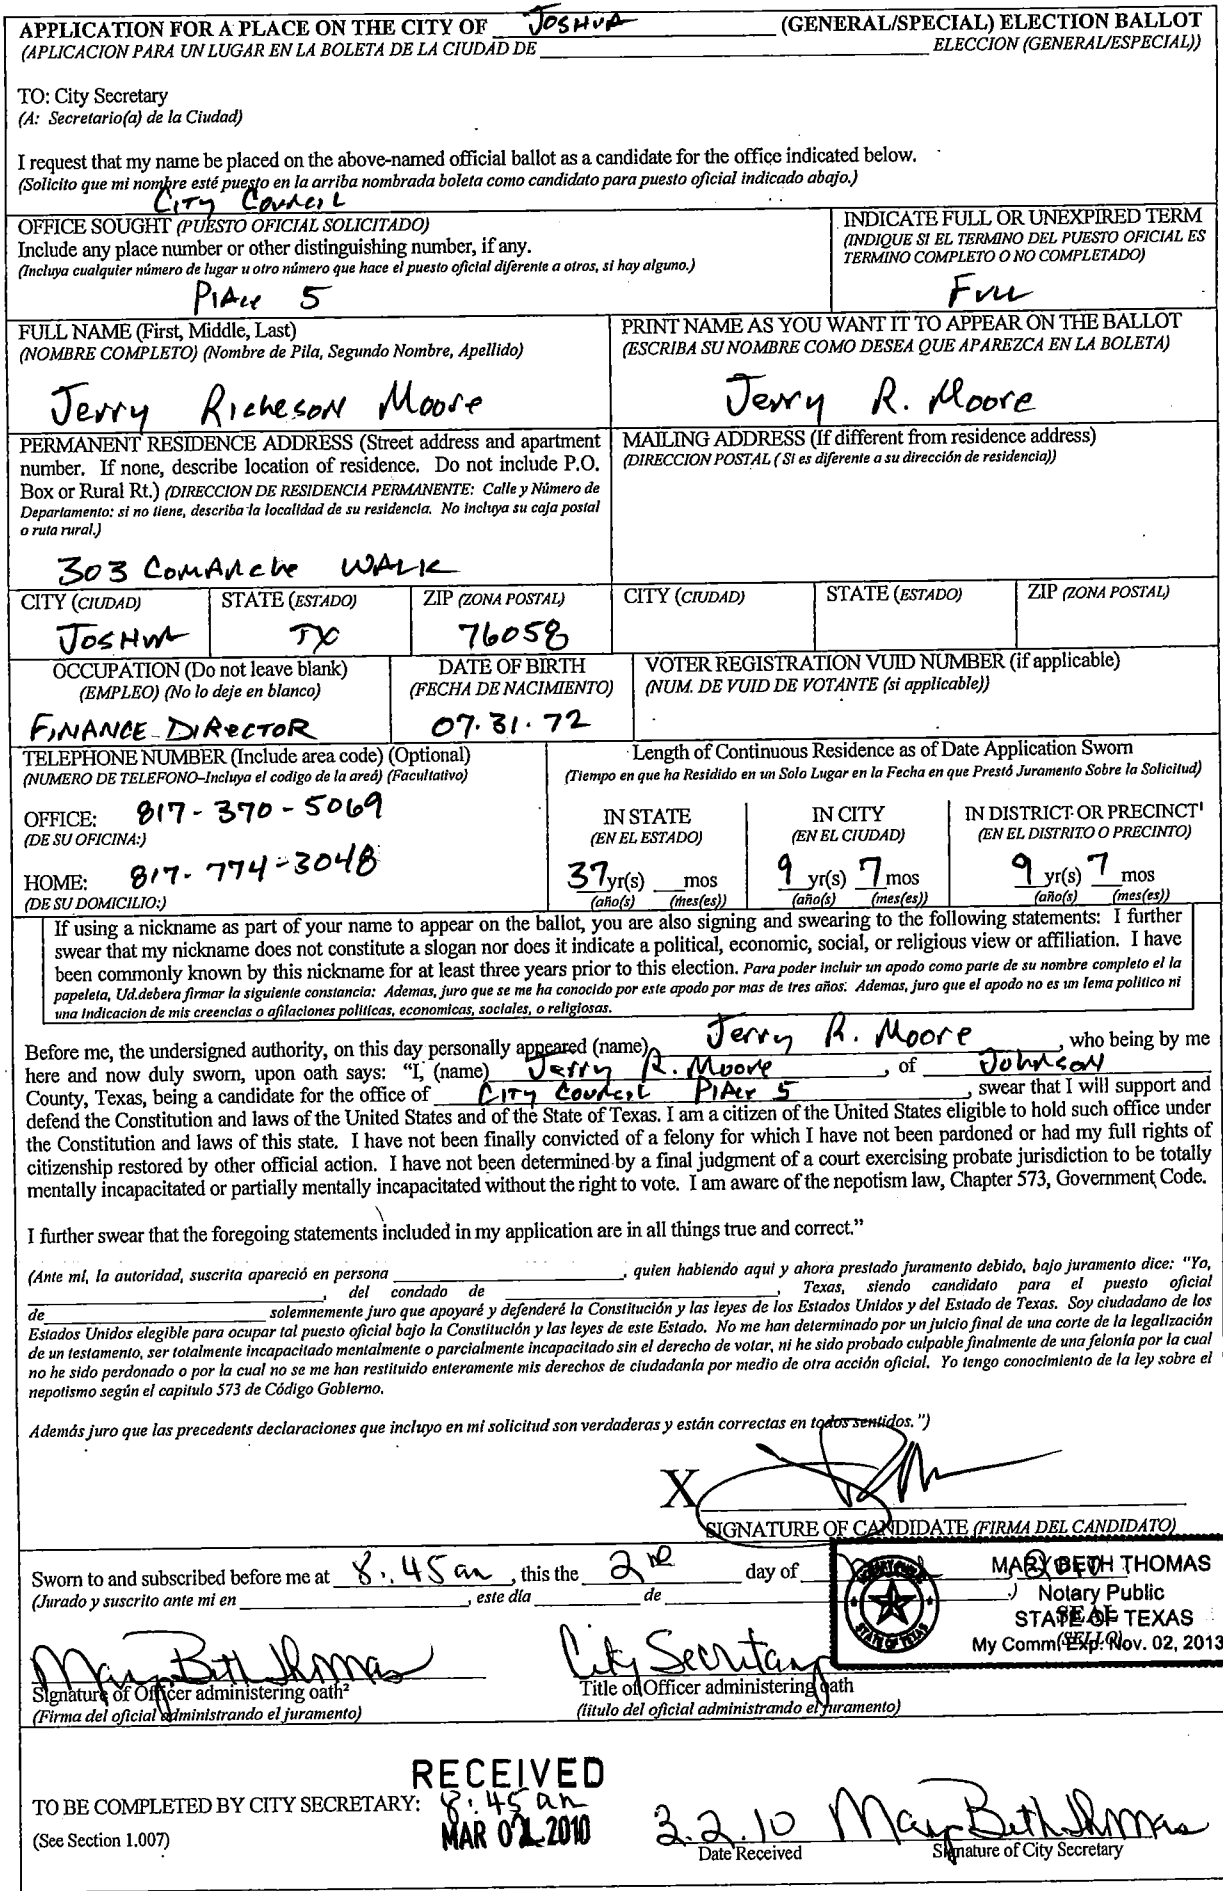 APPLICATION FOR A PLACE ON THE CITY OF JOSHUA (GENERAL/SPECIAL) ELECTION BALLOT
(APLICACION PARA UN LUGAR EN LA BOLETA DE LA CIUDAD DE ELECCION (GENERAL/ESPECIAL))
TO: City Secretary
(A: Secretario(a) de la Ciudad)
I request that my name be placed on the above-named official ballot as a candidate for the office indicated below.
(Solicito que mi nombre esté puesto en la arriba nombrada boleta como candidato para puesto oficial indicado abajo.)
City Council
OFFICE SOUGHT (PUESTO OFICIAL SOLICITADO)
Include any place number or other distinguishing number, if any.
(Incluya cualquier número de lugar u otro número que hace el puesto oficial diferente a otros, si hay alguno.)
Place 5
INDICATE FULL OR UNEXPIRED TERM
(INDIQUE SI EL TERMINO DEL PUESTO OFICIAL ES
TERMINO COMPLETO O NO COMPLETADO)
Full
FULL NAME (First, Middle, Last)
(NOMBRE COMPLETO) (Nombre de Pila, Segundo Nombre, Apellido)
Jerry Richeson Moore
PRINT NAME AS YOU WANT IT TO APPEAR ON THE BALLOT
(ESCRIBA SU NOMBRE COMO DESEA QUE APAREZCA EN LA BOLETA)
Jerry R. Moore
PERMANENT RESIDENCE ADDRESS (Street address and apartment
number. If none, describe location of residence. Do not include P.O.
Box or Rural Rt.) (DIRECCION DE RESIDENCIA PERMANENTE: Calle y Número de
Departamento: si no tiene, describa la localidad de su residencia. No incluya su caja postal
o ruta rural.)
303 Comanche Walk
MAILING ADDRESS (If different from residence address)
(DIRECCION POSTAL ( Si es diferente a su dirección de residencia))
CITY (CIUDAD) STATE (ESTADO) ZIP (ZONA POSTAL) CITY (CIUDAD) STATE (ESTADO) ZIP (ZONA POSTAL)
Joshua TX 76058
OCCUPATION (Do not leave blank)
(EMPLEO) (No lo deje en blanco)
Finance Director
DATE OF BIRTH
(FECHA DE NACIMIENTO)
07.31.72
VOTER REGISTRATION VUID NUMBER (if applicable)
(NUM. DE VUID DE VOTANTE (si applicable))
TELEPHONE NUMBER (Include area code) (Optional)
(NUMERO DE TELEFONO–Incluya el codigo de la areá) (Facultativo)
OFFICE: 817-370-5069
(DE SU OFICINA:)
HOME: 817-774-3048
(DE SU DOMICILIO:)
Length of Continuous Residence as of Date Application Sworn
(Tiempo en que ha Residido en un Solo Lugar en la Fecha en que Prestó Juramento Sobre la Solicitud)
IN STATE IN CITY IN DISTRICT OR PRECINCT¹
(EN EL ESTADO) (EN EL CIUDAD) (EN EL DISTRITO O PRECINTO)
37 yr(s) mos 9 yr(s) 7 mos 9 yr(s) 7 mos
(año(s) (mes(es)) (año(s) (mes(es)) (año(s) (mes(es))
If using a nickname as part of your name to appear on the ballot, you are also signing and swearing to the following statements: I further
swear that my nickname does not constitute a slogan nor does it indicate a political, economic, social, or religious view or affiliation. I have
been commonly known by this nickname for at least three years prior to this election. Para poder incluir un apodo como parte de su nombre completo el la
papeleta, Ud.debera firmar la siguiente constancia: Ademas, juro que se me ha conocido por este apodo por mas de tres años. Ademas, juro que el apodo no es un lema politico ni
una indicacion de mis creencias o afilaciones politicas, economicas, sociales, o religiosas.
Before me, the undersigned authority, on this day personally appeared (name) Jerry R. Moore, who being by me
here and now duly sworn, upon oath says: “I, (name) Jerry R. Moore, of Johnson
County, Texas, being a candidate for the office of City Council Place 5, swear that I will support and
defend the Constitution and laws of the United States and of the State of Texas. I am a citizen of the United States eligible to hold such office under
the Constitution and laws of this state. I have not been finally convicted of a felony for which I have not been pardoned or had my full rights of
citizenship restored by other official action. I have not been determined by a final judgment of a court exercising probate jurisdiction to be totally
mentally incapacitated or partially mentally incapacitated without the right to vote. I am aware of the nepotism law, Chapter 573, Government Code.
I further swear that the foregoing statements included in my application are in all things true and correct.”
(Ante mí, la autoridad, suscrita apareció en persona , quien habiendo aquí y ahora prestado juramento debido, bajo juramento dice: "Yo,
, del condado de , Texas, siendo candidato para el puesto oficial
de solemnemente juro que apoyaré y defenderé la Constitución y las leyes de los Estados Unidos y del Estado de Texas. Soy ciudadano de los
Estados Unidos elegible para ocupar tal puesto oficial bajo la Constitución y las leyes de este Estado. No me han determinado por un juicio final de una corte de la legalización
de un testamento, ser totalmente incapacitado mentalmente o parcialmente incapacitado sin el derecho de votar, ni he sido probado culpable finalmente de una felonía por la cual
no he sido perdonado o por la cual no se me han restituido enteramente mis derechos de ciudadanía por medio de otra acción oficial. Yo tengo conocimiento de la ley sobre el
nepotismo según el capitulo 573 de Código Gobierno.
Además juro que las precedents declaraciones que incluyo en mi solicitud son verdaderas y están correctas en todos sentidos.")
X
SIGNATURE OF CANDIDATE (FIRMA DEL CANDIDATO)
Sworn to and subscribed before me at 8:45 am, this the 2nd day of
(Jurado y suscrito ante mi en , este día de
MARY BETH THOMAS
Notary Public
STATE OF TEXAS
My Comm. Exp. Nov. 02, 2013
SEAL
(SELLO)
STATE OF TEXAS
Mary Beth Thomas City Secretary
Signature of Officer administering oath² Title of Officer administering oath
(Firma del oficial administrando el juramento) (título del oficial administrando el juramento)
RECEIVED
TO BE COMPLETED BY CITY SECRETARY: 8:45 am
(See Section 1.007) MAR 02 2010 3.2.10 Mary Beth Thomas
Date Received Signature of City Secretary